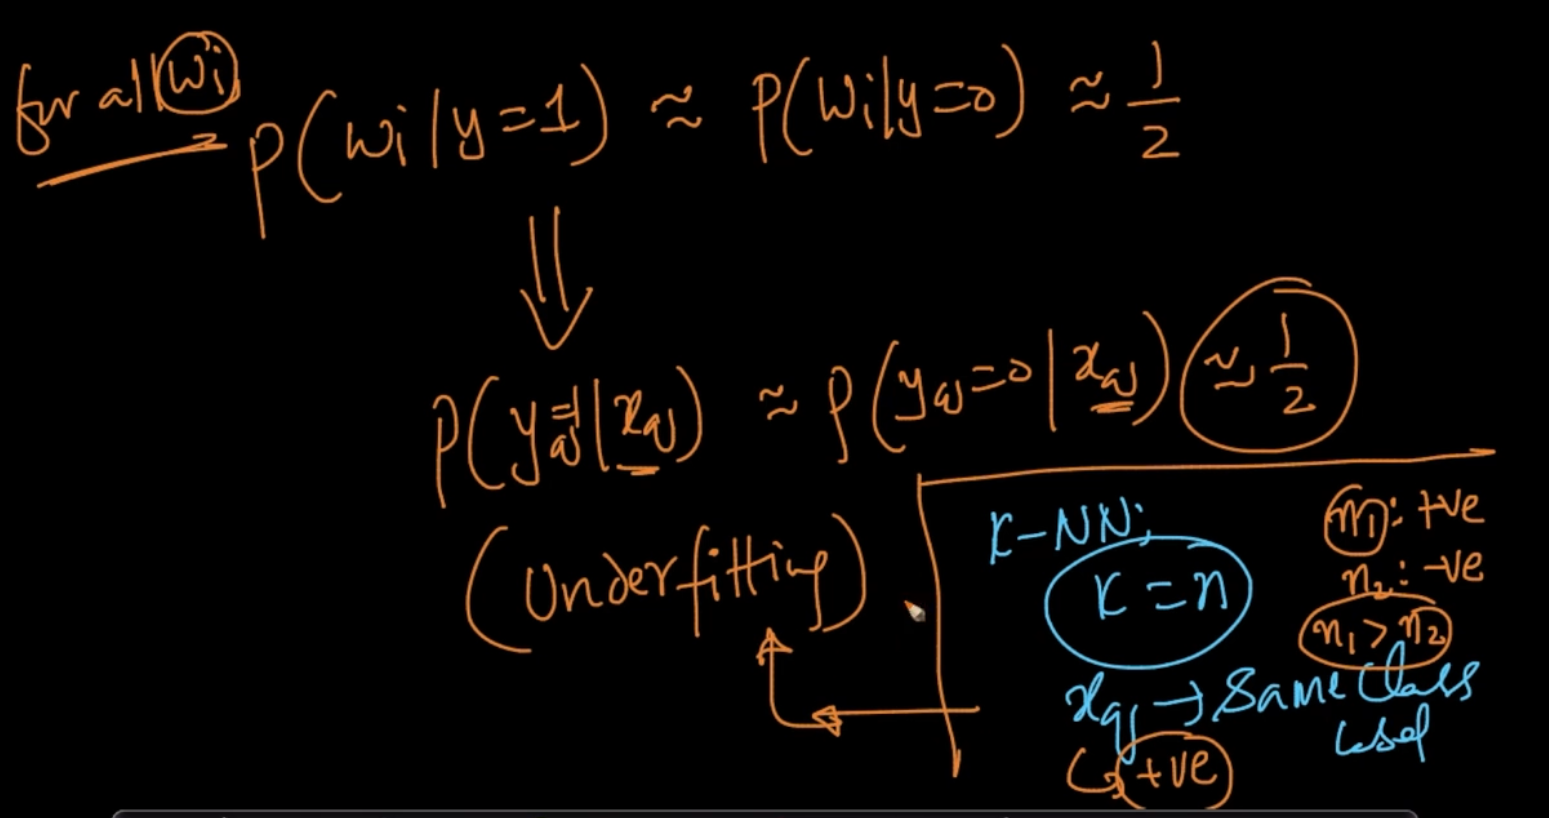 for all wi
P(wi|y=1) ≈ P(wi|y=0) ≈ 1/2
⇓
P(yq=1|xq) ≈ P(yq=0|xq) ≈ 1/2
(Underfitting)
K-NN:
K=n
n1: +ve
n2: -ve
n1 > n2
xq → Same Class
label
↳ +ve